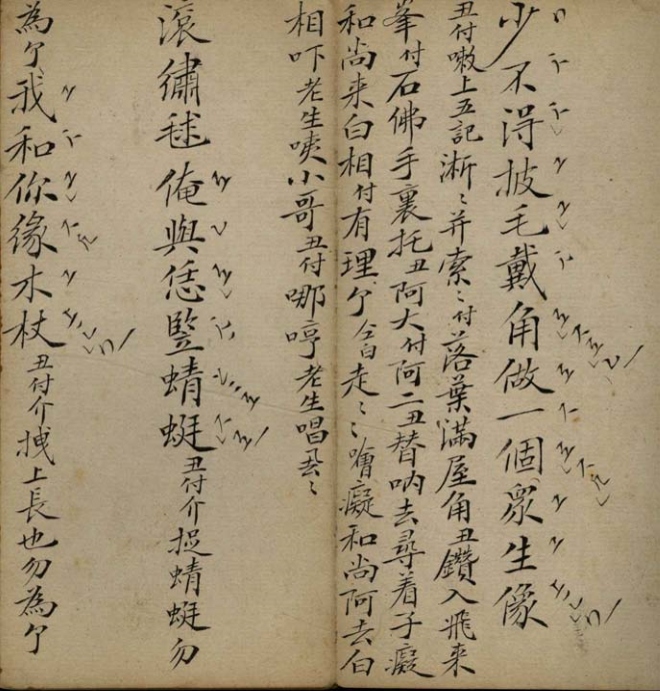 少不得披毛戴角做一個衆生像
丑付嗽上五記淅〻并索〻付落葉滿屋角丑鑽入飛来
峯付石佛手裏托丑阿大付阿二丑替吶去尋着子癡
和尚来白相付有理介仝白走〻〻噲癡和尚阿去白
相吓老生咦小哥丑付哪哼老生唱
滾繡毬俺與恁豎蜻蜓丑付介捉蜻蜓勿
為介我和你緣木杖丑付介拽上長也勿為介